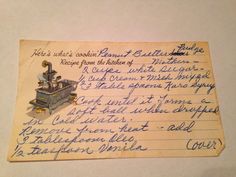 Here's what's cookin' Peanut Butter Fudge
Recipe from the kitchen of Mothers
2 cups white sugar
½ cup cream & milk mixed
3 table spoons Karo Syrup
Cook until it forms a
soft ball when dropped
in cold water.
Remove from heat - add
3 tablespoons Oleo
½ teaspoon Vanila
(over)